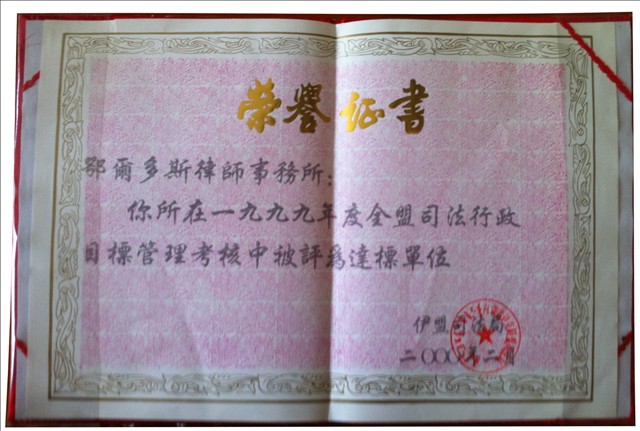 荣誉证书
鄂爾多斯律師事務所：
你所在一九九九年度全盟司法行政
目標管理考核中被評爲達標單位
伊盟司法局
二〇〇〇年二月